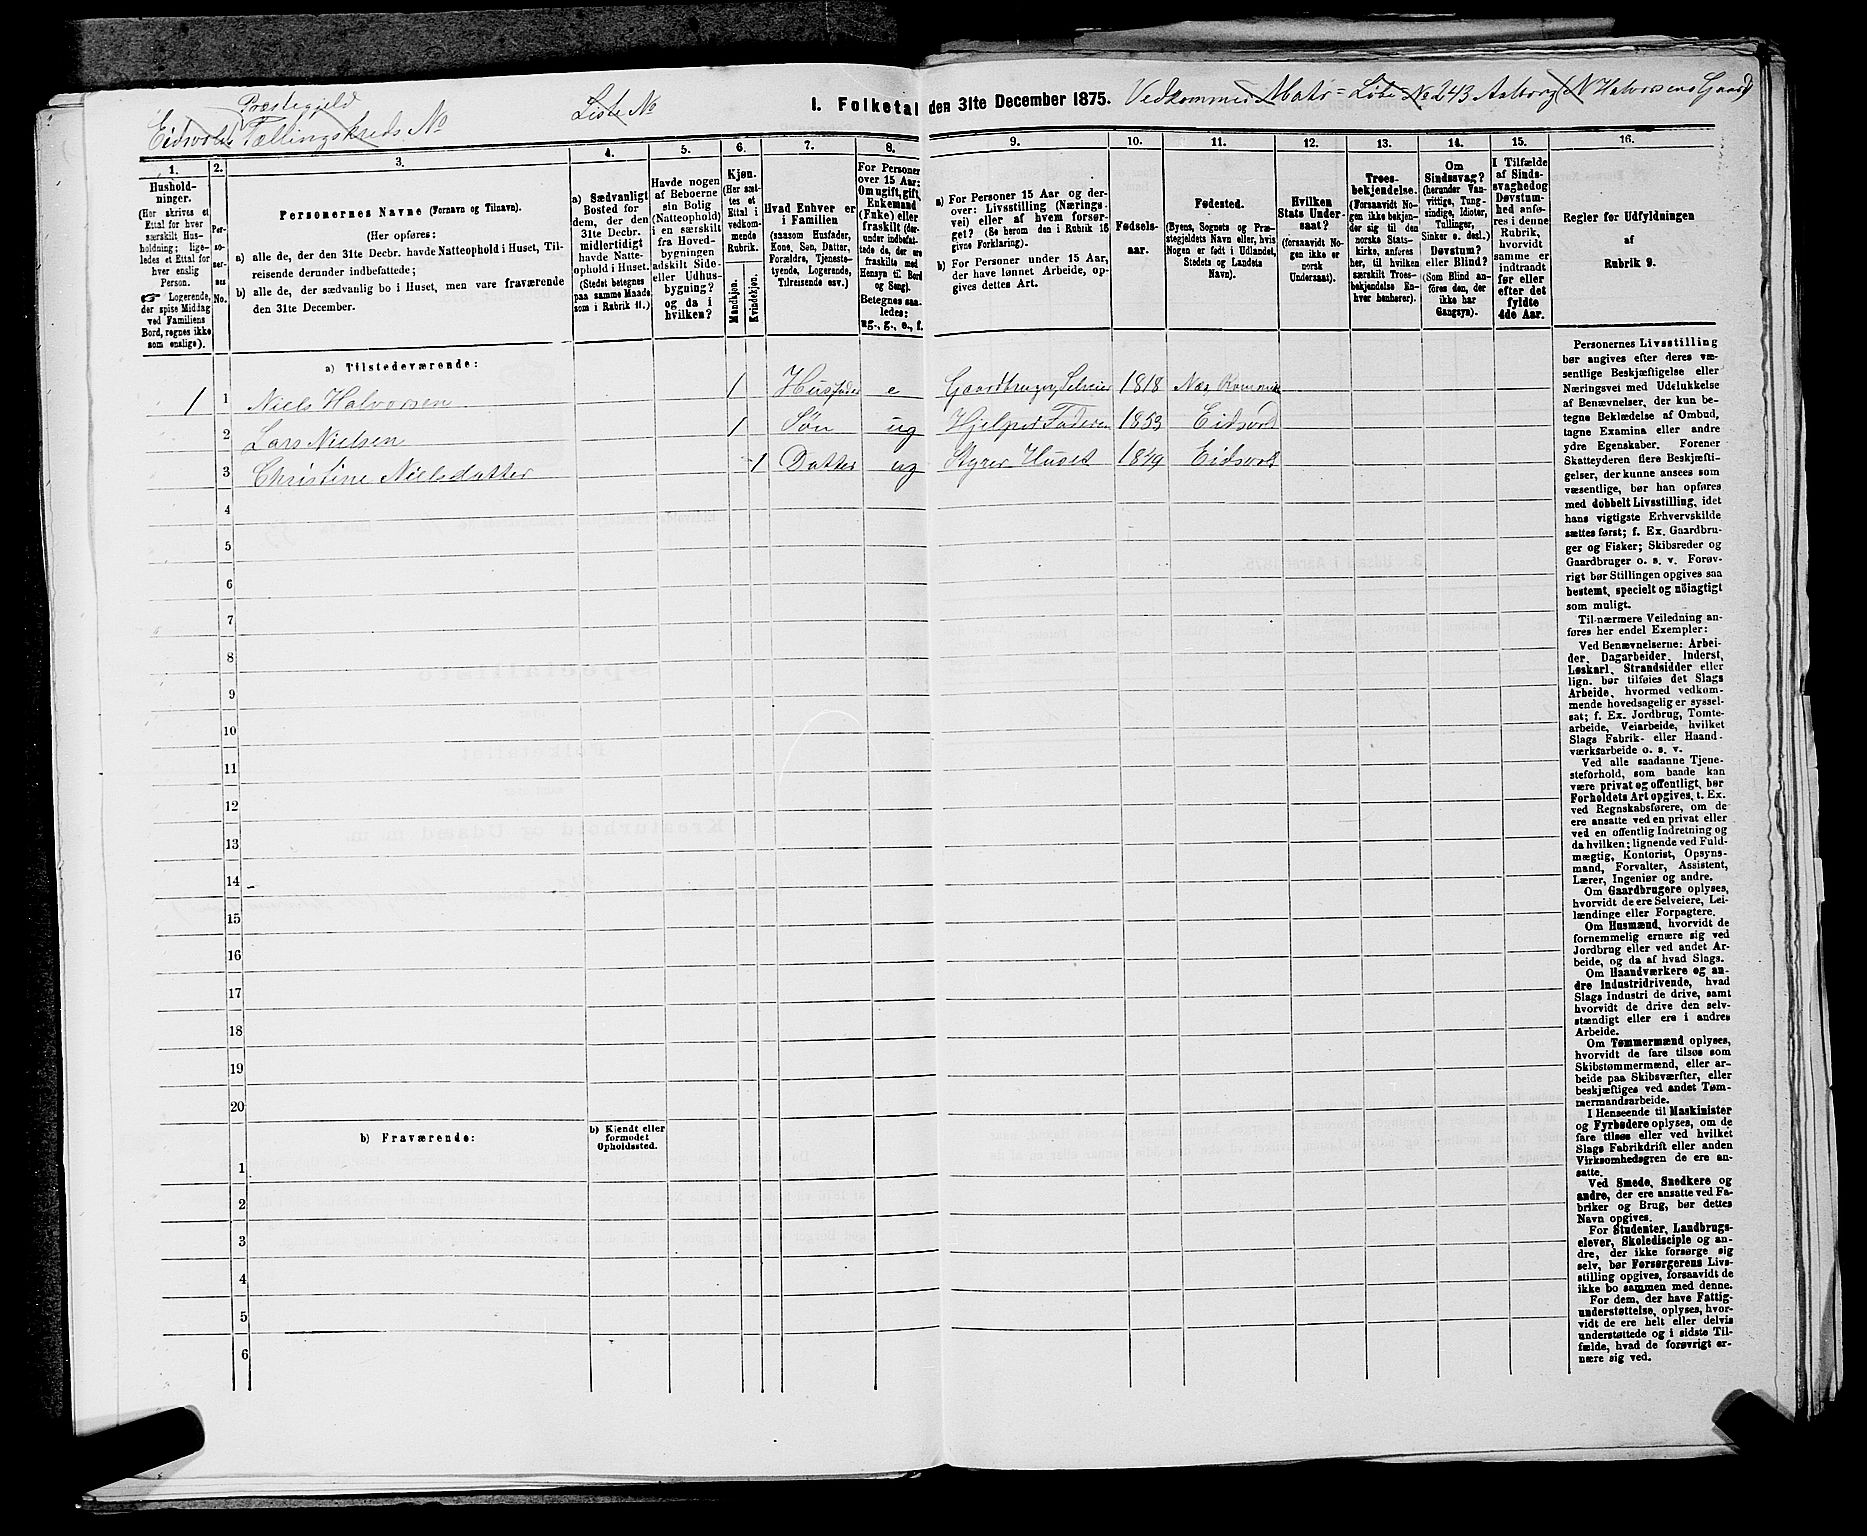 Præstegjeld
Eidsvolds Tællingskreds No
Liste No
I. Folketal den 31te December 1875.
Vedkommer Matr = Løbe = No 243 Aalborg (N Halvorsens Gaard
1.
Hushold-
ninger.
(Her skrives et
Ettal for hver
særskilt Hus-
holdning; lige-
ledes et Ettal for
hver enslig
Person.
☞ Logerende,
der spise Middag
ved Familiens
Bord, regnes ikke
som enslige).
2.
Per-
so-
ner-
nes
No.
3.
Personernes Navne (Fornavn og Tilnavn).
(Her opføres:
a) alle de, der den 31te Decbr. havde Natteophold i Huset, Til-
reisende derunder indbefattede;
b) alle de, der sædvanlig bo i Huset, men vare fraværende
den 31te December.
4.
a) Sædvanligt
Bosted for
dem, der den
31te Decbr.
midlertidigt
havde Natte-
ophold i Huset.
(Stedet betegnes
paa samme Maade
som i Rubrik 11.)
5.
Havde nogen
af Beboerne
sin Bolig
(Natteophold)
i en særskilt
fra Hoved-
bygningen
adskilt Side-
eller Udhus-
bygning?
og da i
hvilken?
6.
Kjøn.
(Her sæt-
tes et
Ettal i
vedkom-
mende
Rubrik.
Mandkjøn.
Kvindekjøn.
7.
Hvad Enhver er
i Familien
(saasom Husfader,
Kone, Søn, Datter,
Forældre, Tjeneste-
tyende, Logerende,
Tilreisende osv.)
8.
For Personer
over 15 Aar:
Om ugift, gift,
Enkemand
(Enke) eller
fraskilt (der-
under indbefat-
tede de, der ere
fraskilte med
Hensyn til Bord
og Seng).
Betegnes saa-
ledes:
ug., g., e., f.
9.
a) For Personer 15 Aar og der-
over: Livsstilling (Nærings-
vei) eller af hvem forsør-
get? (Se herom den i Rubrik 16
givne Forklaring).
b) For Personer under 15 Aar,
der have lønnet Arbeide, op-
gives dettes Art.
10.
Fødsels-
aar.
11.
Fødested.
(Byens, Sognets og Præ-
stegjeldets Navn eller, hvis
Nogen er født i Udlandet,
Stedets og Landets
Navn).
12.
Hvilken
Stats Under-
saat?
(forsaavidt No-
gen ikke er
norsk
Undersaat).
13.
Troes-
bekjendelse.
(Forsaavidt No-
gen ikke bekjen-
der sig til den
norske Stats-
kirke, anføres
her, til hvilken
særskilt Troes-
bekjendelse En-
hver henhører).
14.
Om
Sindssvag?
(herunder Van-
vittige, Tung-
sindige, Idioter,
Tullinger,
Sinker o. desl.)
Døvstum?
eller Blind?
(Som Blind an-
føres den, der
ikke har
Gangsyn).
15.
I Tilfælde
af Sinds-
svaghed og
Døvstum-
hed anfø-
res i denne
Rubrik,
hvorvidt
samme er
indtraadt
før eller
efter det
fyldte
4de Aar.
16.
Regler for Udfyldningen
af
Rubrik 9.
a) Tilstedeværende:
1 1 Niels Halvorsen 1 Husfader e Gaardbruger, Selveier 1818 Næs Kommune
2 Lars Nielsen 1 Søn ug Hjelper Faderen 1853 Eidsvold
3 Christine Nielsdatter 1 Datter ug Styrer Huset 1849 Eidsvold
4
5
6
7
8
9
10
11
12
13
14
15
16
17
18
19
20
b) Fraværende:
b) Kjendt eller
formodet
Opholdssted.
1
2
3
4
5
6
Personernes Livsstilling
bør angives efter deres væ-
sentlige Beskjæftigelse eller
Næringsvei med Udelukkelse
af Benævnelser, der kun be-
tegne Beklædelse af Ombud,
tagne Examina eller andre
ydre Egenskaber. Forener
Skatteyderen flere Beskjæfti-
gelser, der kunne ansees som
væsentlige, bør han opføres
med dobbelt Livsstilling, idet
hans vigtigste Erhvervskilde
sættes først; f. Ex. Gaardbru-
ger og Fisker; Skibsreder og
Gaardbruger o. s. v. Forøv-
rigt bør Stillingen opgives saa
bestemt, specielt og nöiagtigt
som muligt.
Til nærmere Veiledning an-
føres her endel Exempler:
Ved Benævnelserne: Arbei-
der, Dagarbeider, Inderst,
Løskarl, Strandsidder eller
lign. bør tilføies det Slags
Arbeide, hvormed vedkom-
mende hovedsagelig er syssel-
sat; f. Ex. Jordbrug, Tomte-
arbeide, Veiarbeide, hvilket
Slags Fabrik- eller Haand-
værksarbeide o. s. v.
Ved alle saadanne Tjene-
steforhold, som baade kan
være privat og offentligt, bør
Forholdets Art opgives, t. Ex.
ved Regnskabsførere, om de
ere ansatte ved en privat eller
ved en offentlig Indretning og
da hvilken; lignende ved Fuld-
mægtig, Kontorist, Opsyns-
mand, Forvalter, Assistent,
Lærer, Ingeniør og andre.
Om Gaardbrugere oplyses,
hvorvidt de ere Selveiere, Lei-
lændinge eller Forpagtere.
Om Husmænd, hvorvidt de
fornemmelig ernære sig ved
Jordbrug eller ved andet Ar-
beide, og da af hvad Slags.
Om Haandværkere og an-
dre Industridrivende, hvad
Slags Industri de drive, samt
hvorvidt de drive den selv-
stændigt eller ere i andres
Arbeide.
Om Tømmermænd oplyses,
hvorvidt de fare tilsøs som
Skibstømmermænd, eller ar-
beide paa Skibsværfter, eller
beskjæftiges ved andet Tøm-
mermandsarbeide.
I Henseende til Maskinister
og Fyrbødere oplyses, om de
fare tilsøs eller ved hvilket
Slags Fabrikdrift eller anden
Virksomhedsgren de ere an-
satte.
Ved Smede, Snedkere og
andre, der ere ansatte ved Fa-
briker og Brug, bør dettes
Navn opgives.
For Studenter, Landbrugs-
elever, Skoledisciple og an-
dre, der ikke forsørge sig
selv, bør Forsørgerens Livs-
stilling opgives, forsaavidt de
ikke bo sammen med denne.
For dem, der have Fattig-
understøttelse, oplyses, hvor-
vidt de ere helt eller delvis
understøttede og i sidste Til-
fælde, hvad de forøvrigt er-
nære sig ved.